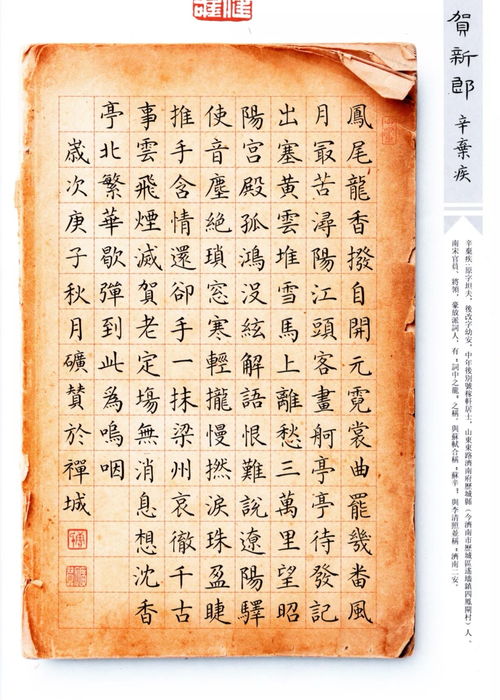 賀新郎 辛棄疾
辛棄疾:原字坦夫,後改字幼安,中年後別號稼軒居士,山東東路濟南府歷城縣(今濟南市歷城區遙墻鎮四鳳閘村)人,
南宋官員、將領,豪放派詞人,有“詞中之龍”之稱。與蘇軾合稱“蘇辛”,與李清照並稱“濟南二安”。
鳳尾龍香撥自開元霓裳曲罷幾番風
月冣苦潯陽江頭客畫舸亭亭待發記
出塞黃雲堆雪馬上離愁三萬里望昭
陽宮殿孤鴻没絃解語恨難說遼陽驛
使音塵絕瑣窓寒輕攏慢撚淚珠盈睫
推手含情還卻手一抹梁州哀徹千古
事雲飛煙滅賀老定場無消息想沈香
亭北繁華歇彈到此爲嗚咽
歲次庚子秋月礦贊於禪城